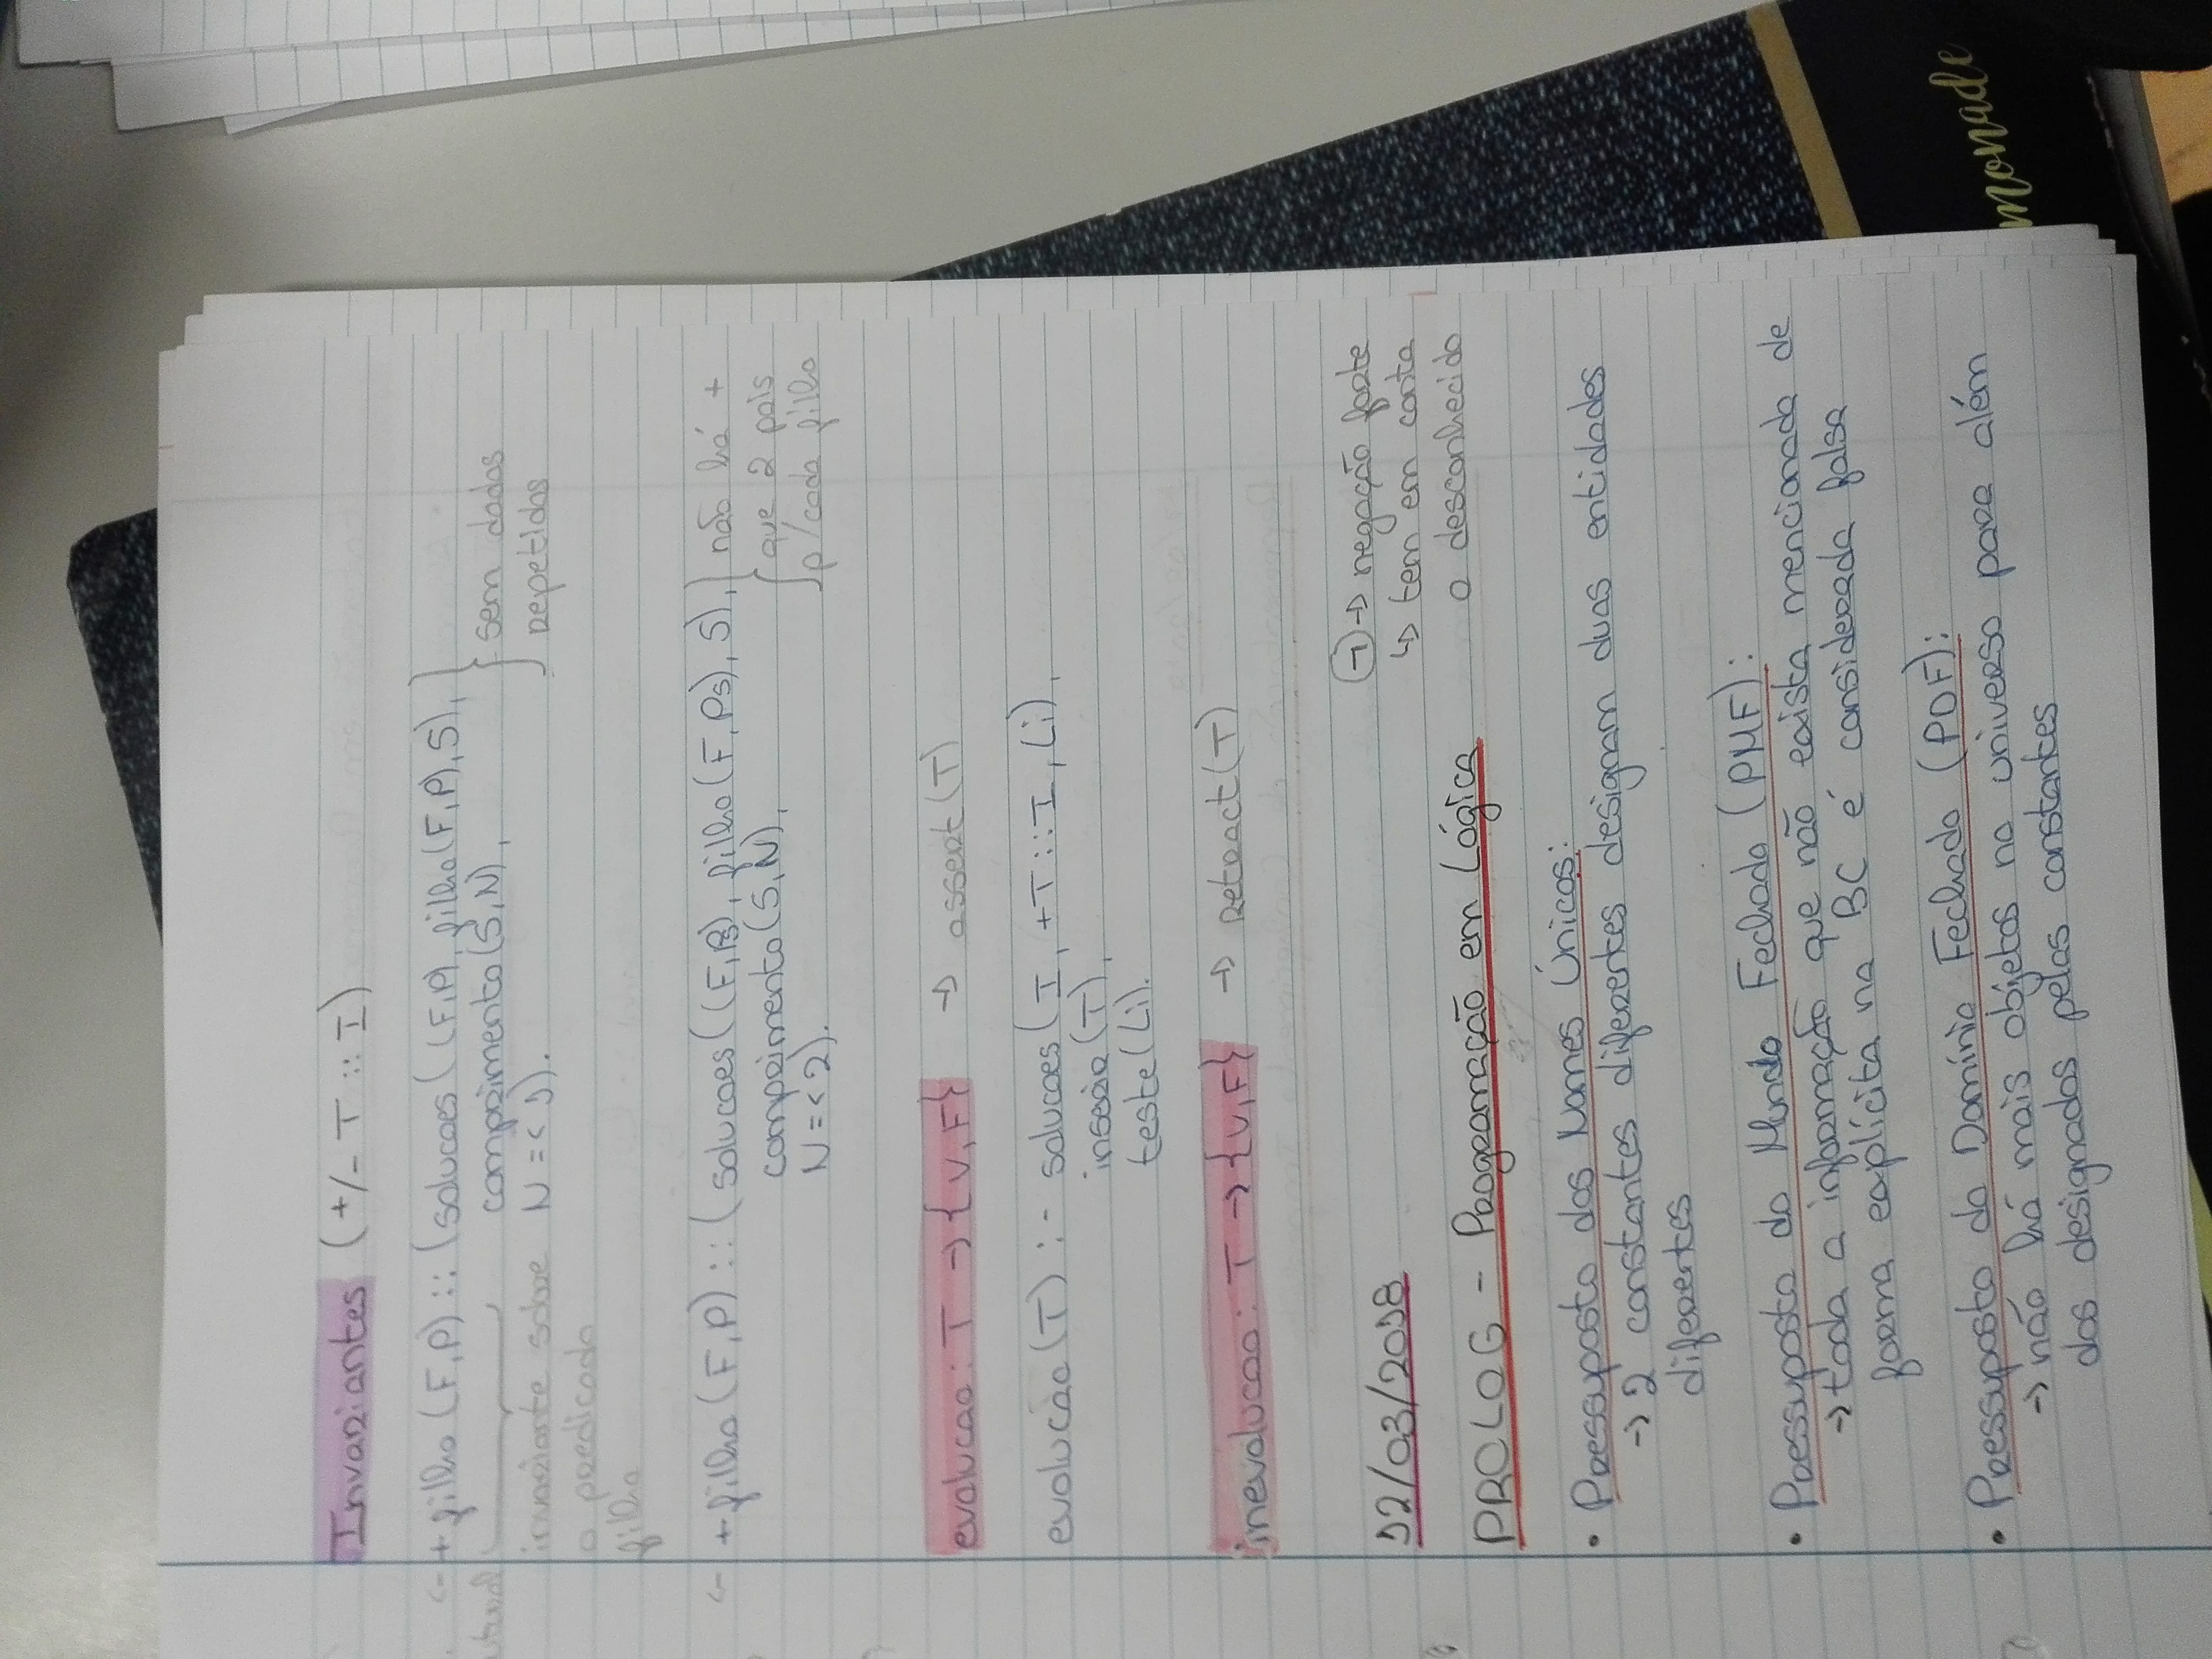 Invariantes (+/- T :: I)
<- +filho (F,P) :: (solucoes ((F,P), filho(F,P), S),
comprimento (S,N),
N =< 1).
} sem dados
repetidos
invariante sobre
o predicado
filho
<- +filho (F,P) :: (solucoes ((F,Ps), filho (F,Ps), S),
comprimento (S,N),
N =< 2).
} não há +
que 2 pais
p/cada filho
evolucao: T -> {V,F} -> assert(T)
evolucao (T) :- solucoes (I, +T::I, Li),
insercao (T),
teste (Li).
inevolucao: T -> {V,F} -> retract (T)
12/03/2018
¬ -> negação forte
↳ tem em conta
o desconhecido
PROLOG - Programação em Lógica
• Pressuposto dos Nomes Únicos:
-> 2 constantes diferentes designam duas entidades
diferentes
• Pressuposto do Mundo Fechado (PMF):
-> toda a informação que não exista mencionada de
forma explícita na BC é considerada falsa
• Pressuposto do Domínio Fechado (PDF):
-> não há mais objetos no universo para além
dos designados pelas constantes
monade